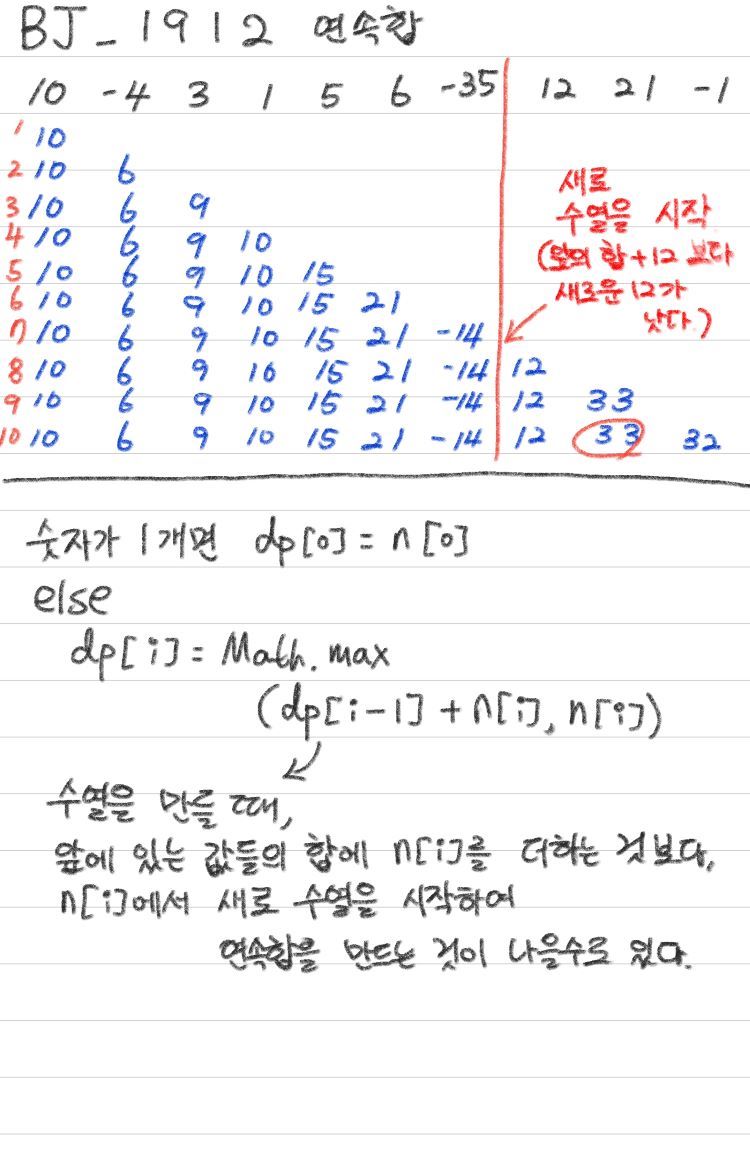 BJ_1912 연속합
10 -4 3 1 5 6 -35 12 21 -1
1 10
2 10 6
3 10 6 9
4 10 6 9 10
5 10 6 9 10 15
6 10 6 9 10 15 21
7 10 6 9 10 15 21 -14
8 10 6 9 10 15 21 -14 12
9 10 6 9 10 15 21 -14 12 33
10 10 6 9 10 15 21 -14 12 33 32
새로
수열을 시작
(앞의 합+12 보다
새로운 12가
낫다.)
숫자가 1개면 dp[0] = n[0]
else
dp[i] = Math.max
(dp[i-1] + n[i], n[i])
수열을 만들 때,
앞에 있는 값들의 합에 n[i]를 더하는 것보다,
n[i]에서 새로 수열을 시작하여
연속합을 만드는 것이 나을수로 있다.